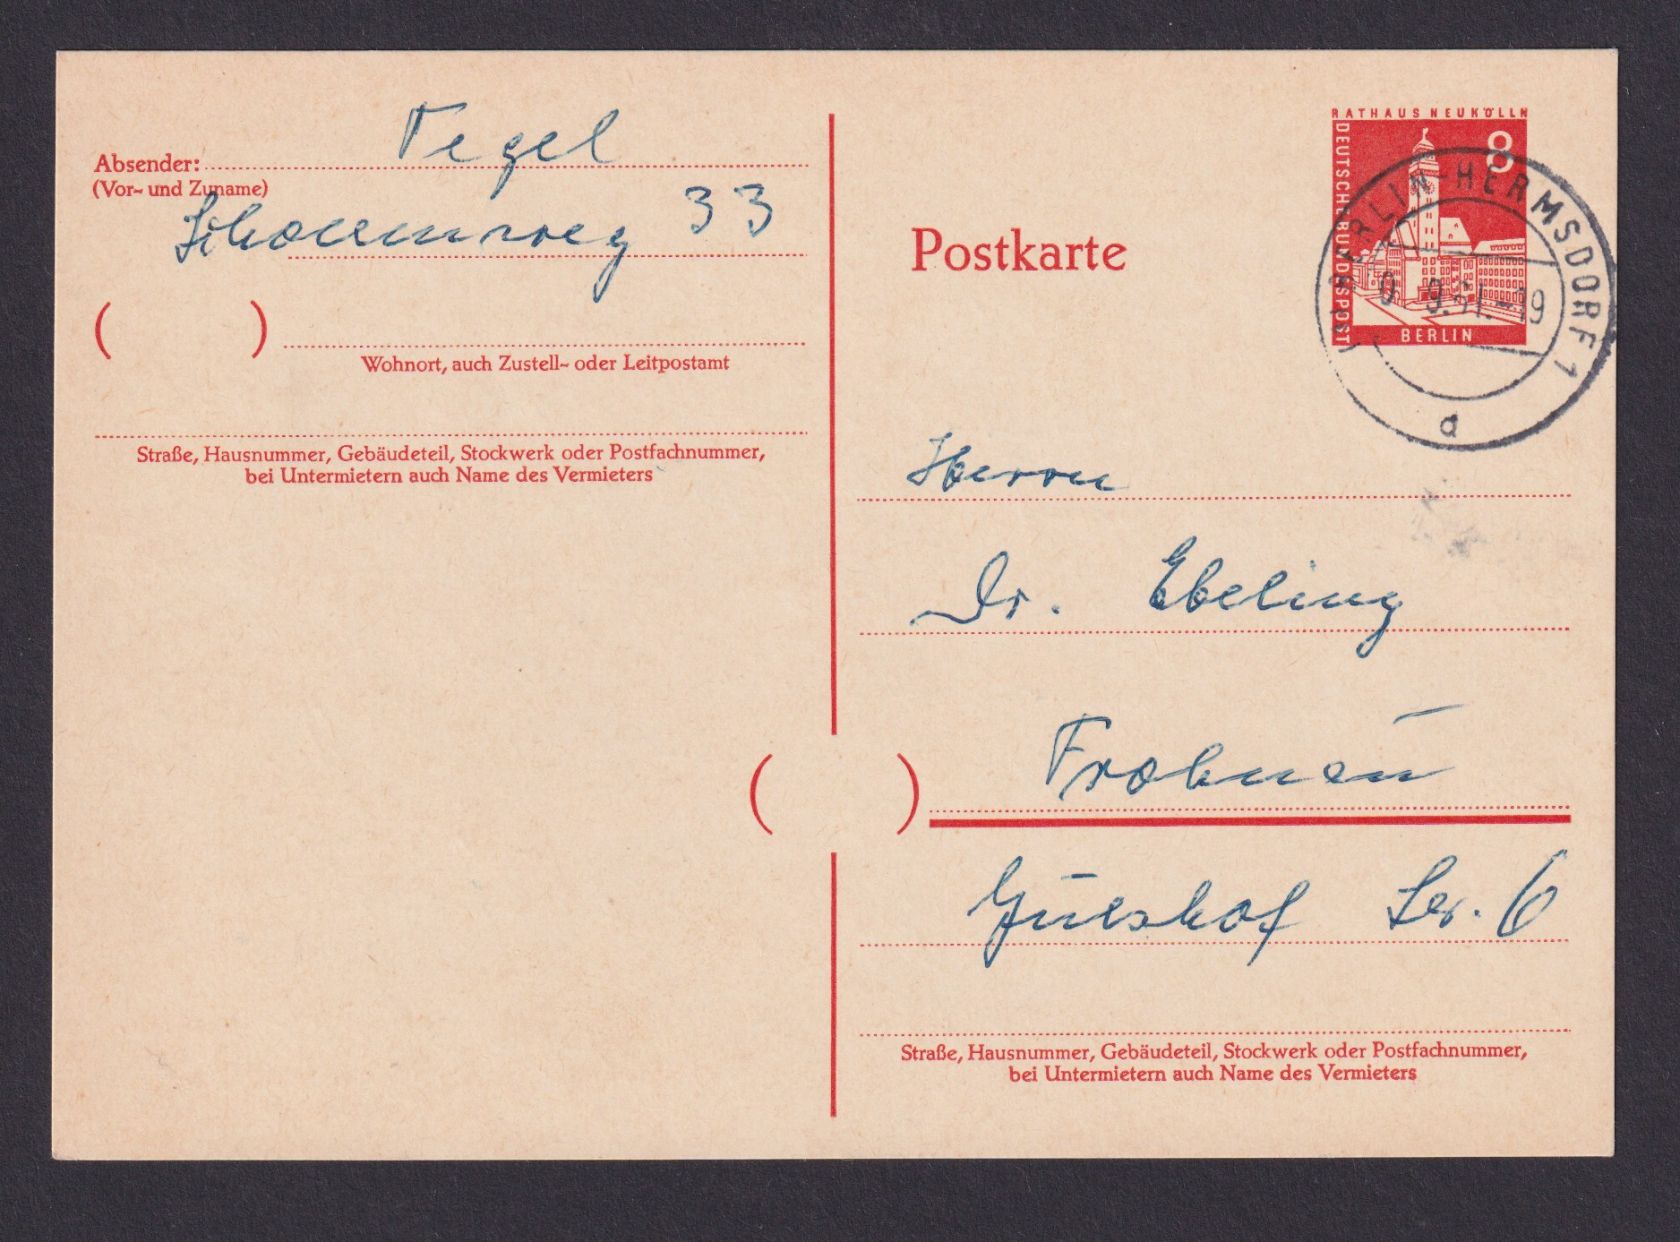 Tegel
Absender:
(Vor- und Zuname)
33
( )
Wohnort, auch Zustell- oder Leitpostamt
Straße, Hausnummer, Gebäudeteil, Stockwerk oder Postfachnummer,
bei Untermietern auch Name des Vermieters
RATHAUS NEUKÖLLN
DEUTSCHE BUNDESPOST
8
BERLIN
BERLIN-HERMSDORF 1
9.61.-19
a
Postkarte
Herrn
Dr. Ebeling
( ) Frohnau
Gutshof Str. 6
Straße, Hausnummer, Gebäudeteil, Stockwerk oder Postfachnummer,
bei Untermietern auch Name des Vermieters